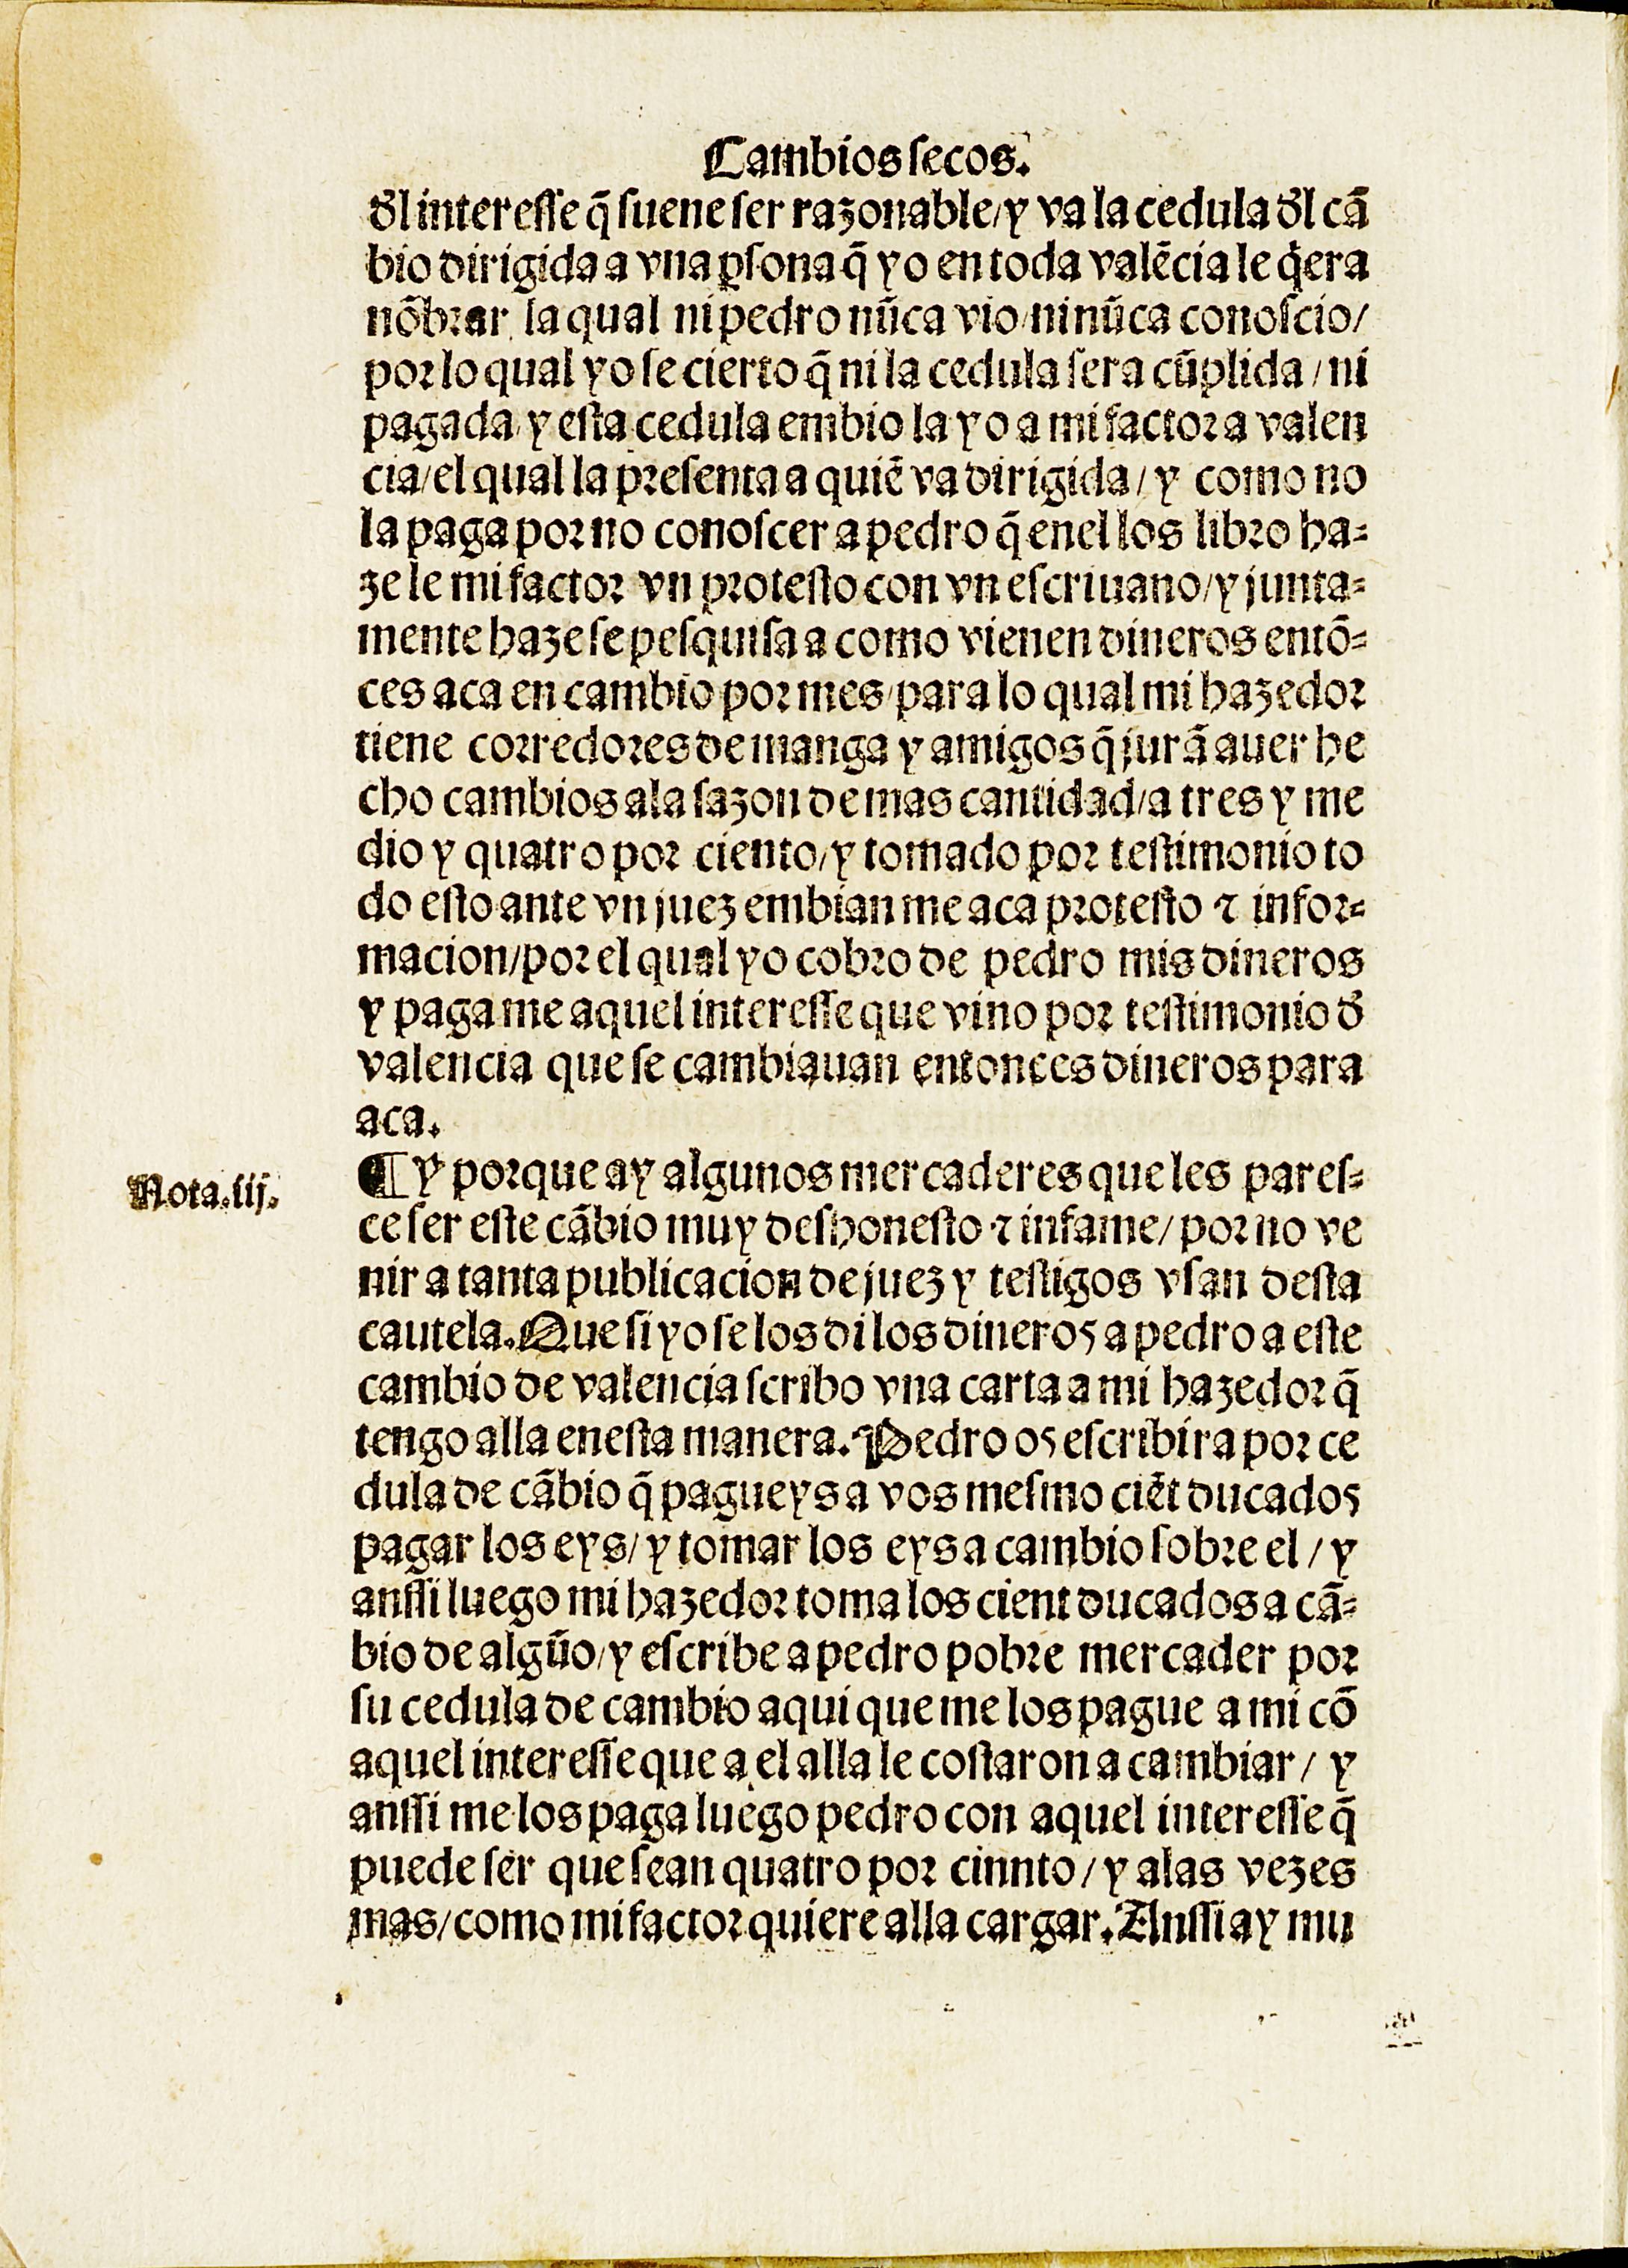 Cambios secos.
ðl interesse q̃ suene ser razonable/ y va la cedula ðl cã
bio dirigida a vna ꝑsona q̃ yo en toda valẽcia le q̃era
nõbrar, la qual ni pedro nũca vio/ ni nũca conoscio/
por lo qual yo se cierto q̃ ni la cedula sera cũplida / ni
pagada/ y esta cedula embio la yo a mi factor a valen
cia/ el qual la presenta a quiẽ va dirigida / y como no
la paga por no conoscer a pedro q̃ enel los libro ha=
ze le mi factor vn protesto con vn escriuano/ y junta=
mente haze se pesquisa a como vienen dineros entõ=
ces aca en cambio por mes/ para lo qual mi hazedor
tiene corredores de manga y amigos q̃ jurã auer he
cho cambios ala sazon de mas cantidad/ a tres y me
dio y quatro por ciento/ y tomado por testimonio to
do esto ante vn juez embian me aca protesto ⁊ infor=
macion/ por el qual yo cobro de pedro mis dineros
y paga me aquel interesse que vino por testimonio ð
valencia que se cambiauan entonces dineros para
aca.
Nota.iij.
¶ Y porque ay algunos mercaderes que les pares=
ce ser este cãbio muy deshonesto ⁊ infame/ por no ve
nir a tanta publicacion de juez y testigos vsan desta
cautela. Que si yo se los di los dineros a pedro a este
cambio de valencia scribo vna carta a mi hazedor q̃
tengo alla enesta manera. Pedro os escribira por ce
dula de cãbio q̃ pagueys a vos mesmo ciẽt ducados
pagar los eys/ y tomar los eys a cambio sobre el / y
anssi luego mi hazedor toma los cient ducados a cã=
bio de algũo/ y escribe a pedro pobre mercader por
su cedula de cambio aqui que me los pague a mi cõ
aquel interesse que a el alla le costaron a cambiar / y
anssi me los paga luego pedro con aquel interesse q̃
puede ser que sean quatro por cinnto / y alas vezes
mas/ como mi factor quiere alla cargar. Anssi ay mu